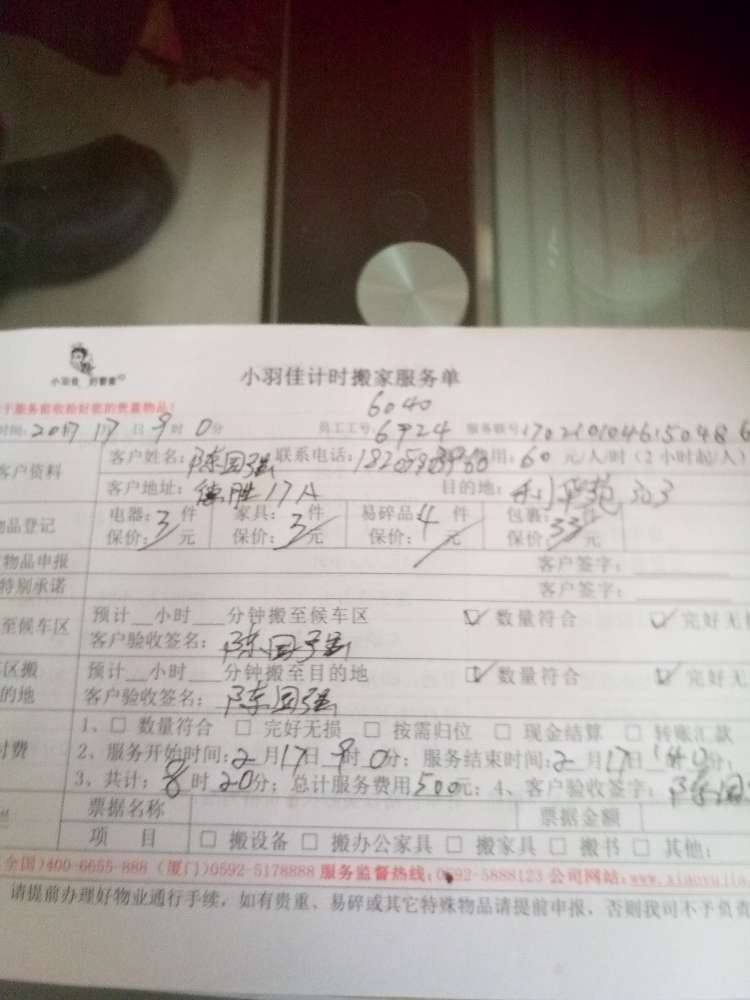 小羽佳 好管家
小羽佳计时搬家服务单
于服务前收拾好您的贵重物品!
6040
时间: 2017 日 9时 0分 员工工号: 6924 服务联号
客户资料 客户姓名: 陈国强 联系电话: 用: 60 元/人/时(2小时起/人)
客户地址: 德胜17A 目的地: 303
物品登记 电器: 3 件 家具: 3 件 易碎品: 4 件 包裹: 33 件
保价: 元 保价: 元 保价: 元 保价: 元
物品申报 客户签字:
特别承诺 客户签字:
至候车区 预计__小时___分钟搬至候车区 ☑ 数量符合 ☑ 完好无
客户验收签名: 陈国强
区搬 预计__小时___分钟搬至目的地 ☑ 数量符合 ☑ 完好无
的地 客户验收签名: 陈国强
付费 1、□ 数量符合 □ 完好无损 □ 按需归位 □ 现金结算 □ 转账汇款
2、服务开始时间: 2 月 17 日 9 时 0 分; 服务结束时间: 2 月 17 日 分;
3、共计: 8 时 20 分; 总计服务费用 500 元; 4、客户验收签字: 陈国
票据名称 票据金额
项 目 □ 搬设备 □ 搬办公家具 □ 搬家具 □ 搬书 □ 其他:
全国)400-6655-888 (厦门)0592-5178888 服务监督热线: 0592-5888123 公司网站:
请提前办理好物业通行手续, 如有贵重、易碎或其它特殊物品请提前申报, 否则我司不予负责